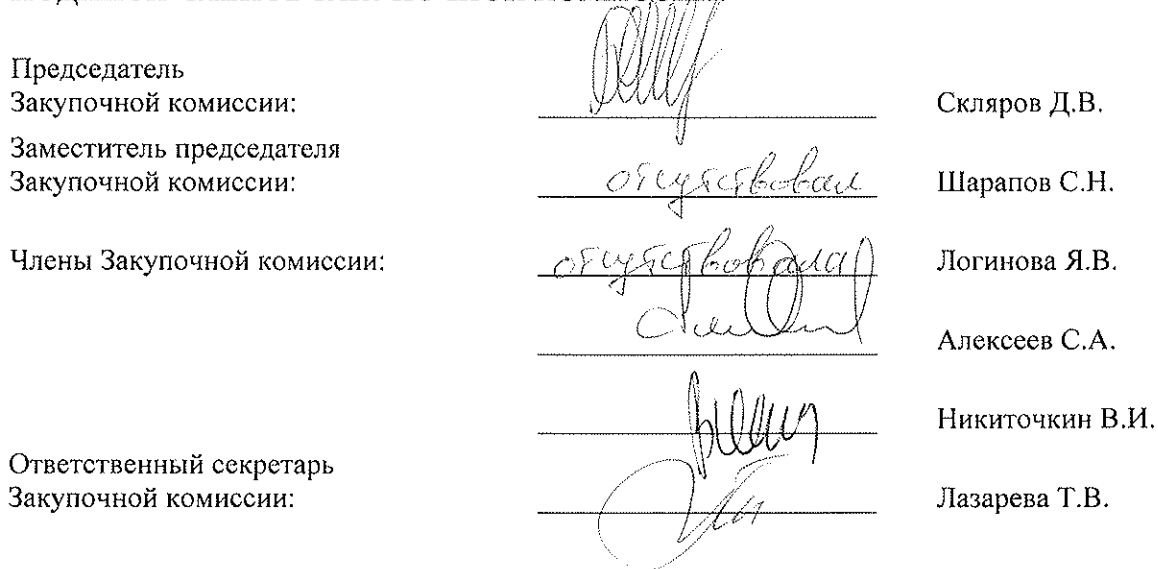 Председатель
Закупочной комиссии: Скляров Д.В.
Заместитель председателя
Закупочной комиссии: отсутствовал Шарапов С.Н.
Члены Закупочной комиссии: отсутствовала Логинова Я.В.
Алексеев С.А.
Никиточкин В.И.
Ответственный секретарь
Закупочной комиссии: Лазарева Т.В.